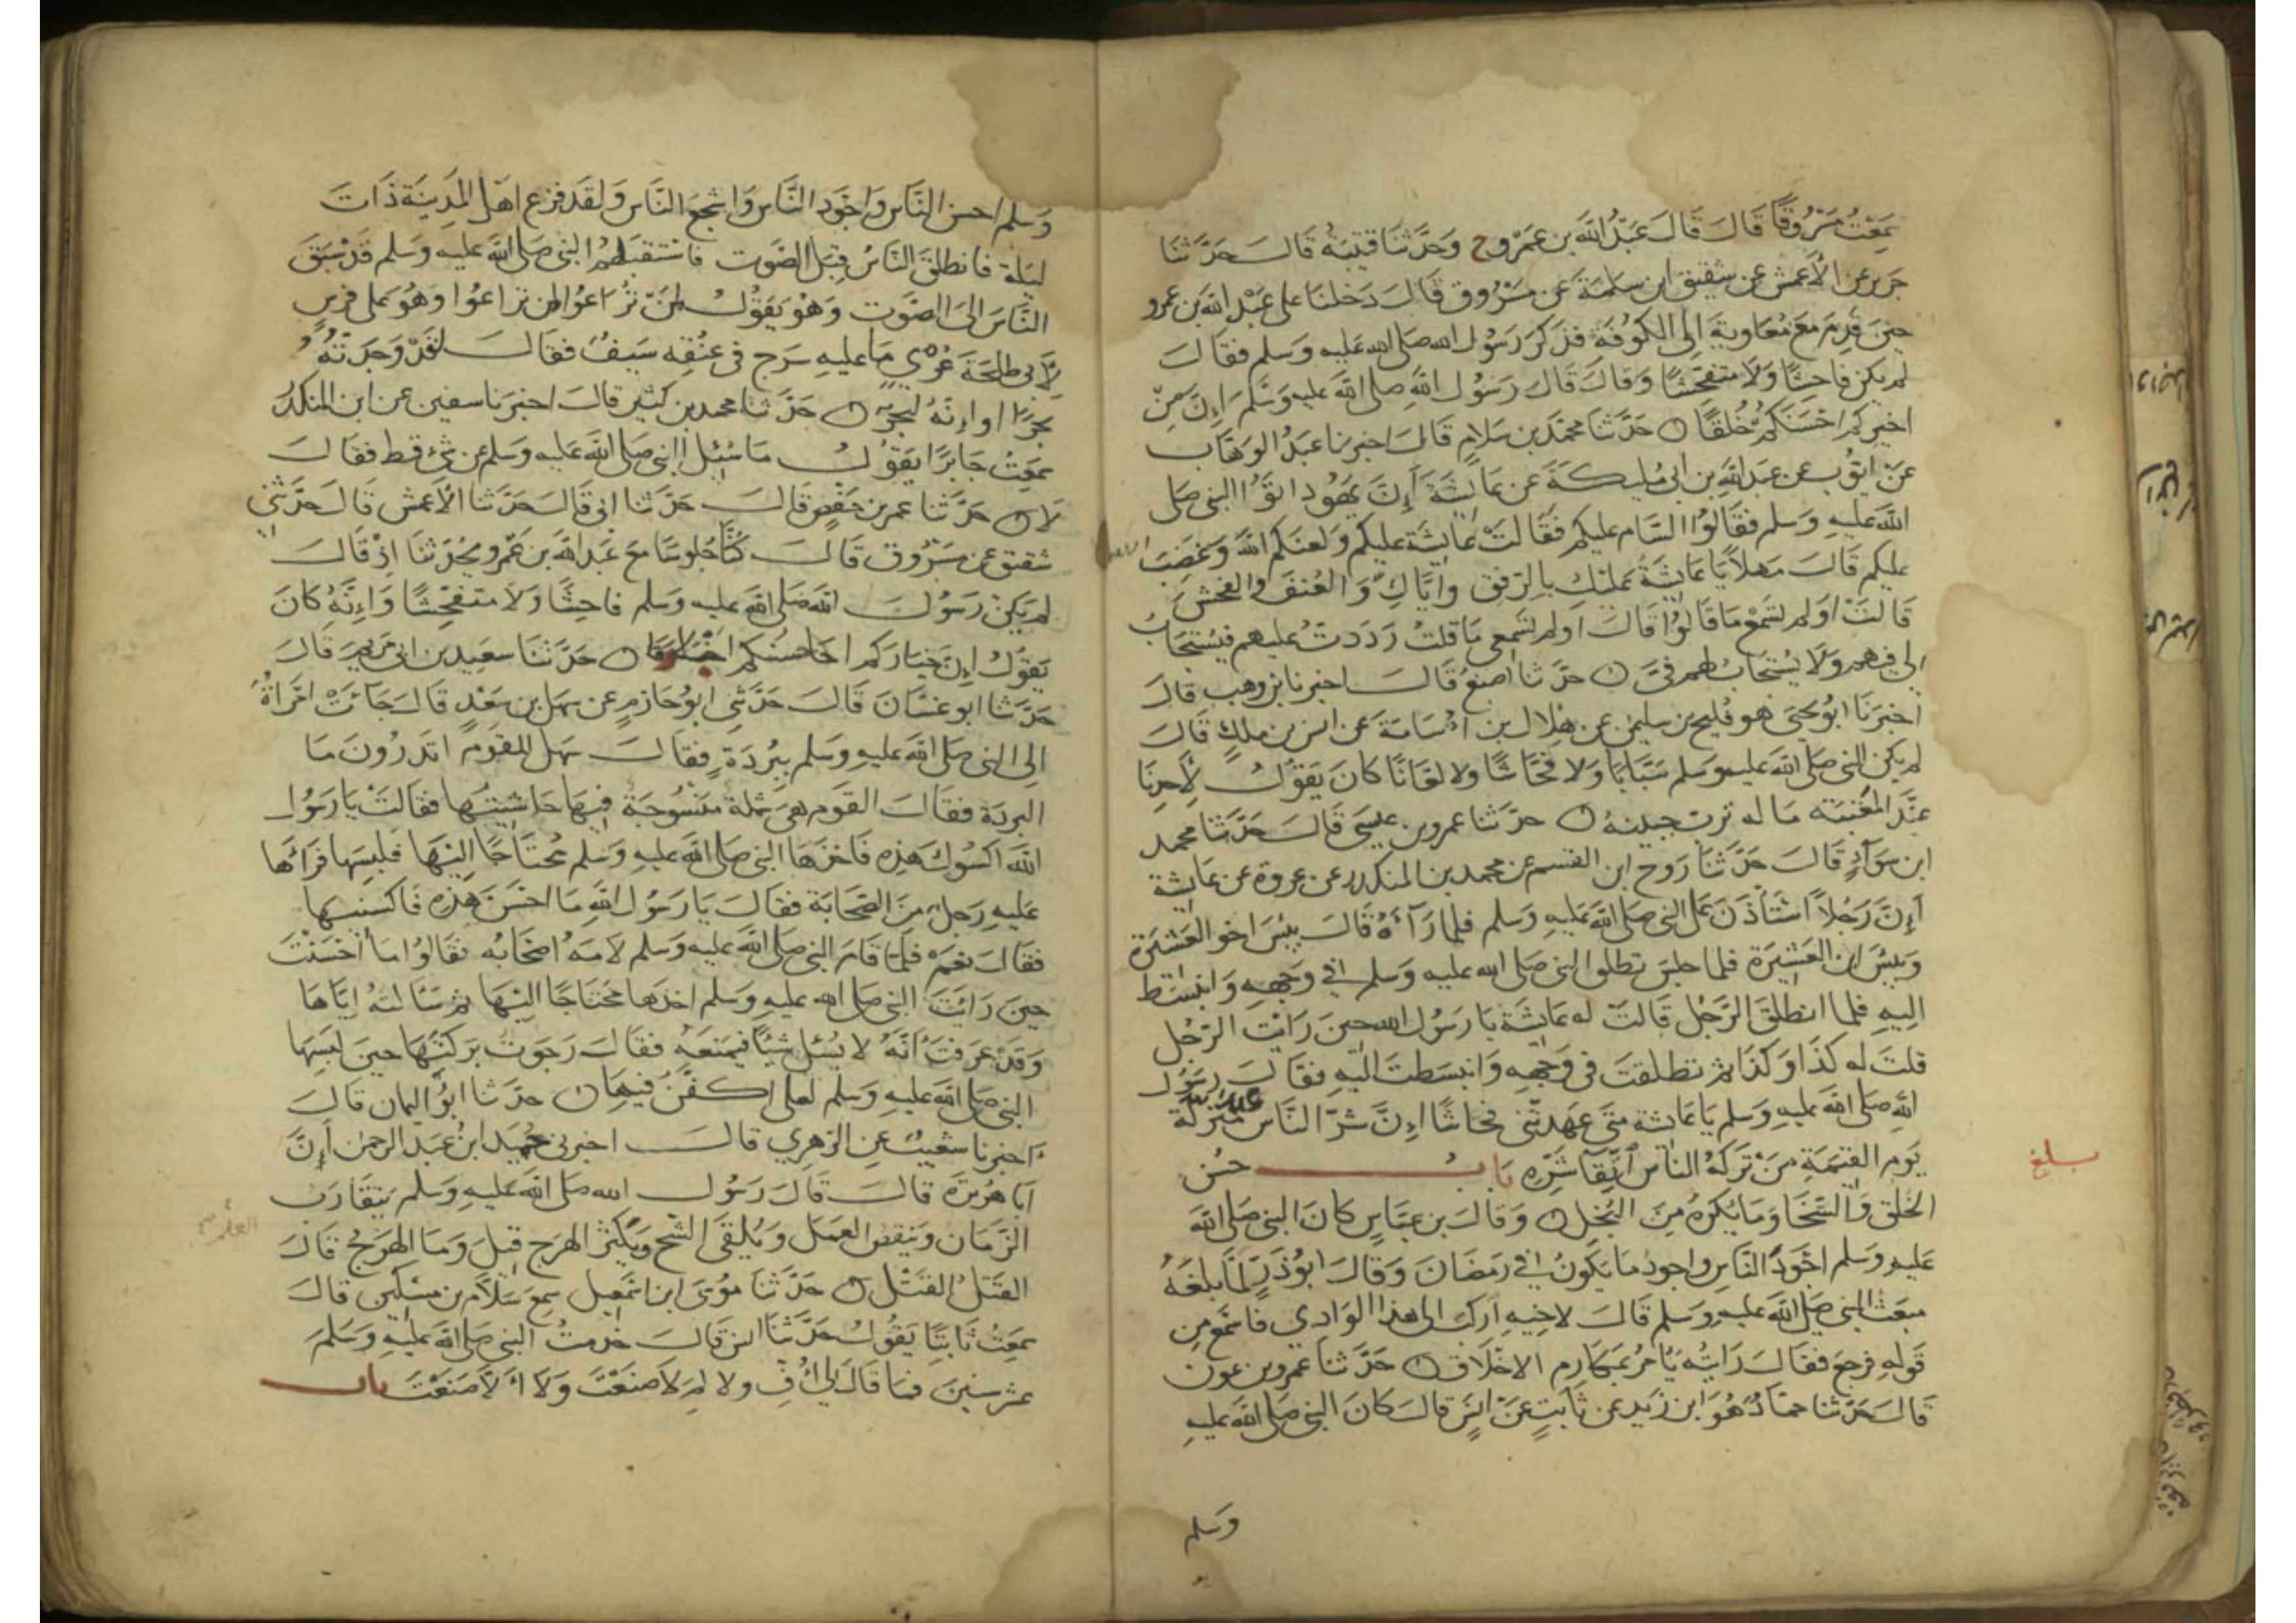 سَمِعْتُ مَسْرُوقًا قَالَ قَالَ عَبْدُ اللَّهِ بن عَمْرٍو ح وَحَدَّثَنَا قُتَيْبَةُ قَالَ حَدَّثَنَا
جرير عن الأعمش عن شقيق ابن سلمة عن مسروق قال دخلنا على عبد الله بن عمرو
حين قدم مع معاوية إلى الكوفة فذكر رسول الله صلى الله عليه وسلم فقال
لم يكن فاحشا ولا متفحشا وقال قال رسول الله صلى الله عليه وسلم إن من
اخيركم احسنكم خلقا حدثنا محمد بن سلام قال اخبرنا عبد الوهاب
عن ايوب عن عبد الله بن ابي مليكة عن عائشة أن يهود اتوا النبي صلى
الله عليه وسلم فقالوا السام عليكم فقالت عائشة عليكم ولعنكم الله وغضب
عليكم قال مهلا يا عائشة عليك بالرفق واياك والعنف والفحش
قالت اولم تسمع ما قالوا قال اولم تسمعي ما قلت رددت عليهم فيستجاب
لي فيهم ولا يستجاب لهم في حدثنا اصبغ قال اخبرنا بن وهب قال
اخبرنا ابو يحيى هو فليح بن سليمن عن هلال بن اسامة عن انس بن ملك قال
لم يكن النبي صلى الله عليه وسلم سبابا ولا فحاشا ولا لعانا كان يقول لأحدنا
عند المعتبه ما له ترب جبينه حدثنا عمرو بن عيسى قال حدثنا محمد
ابن سوآء قال حدثنا روح ابن القسم عن محمد بن المنكدر عن عروة عن عائشة
أن رجلا استأذن على النبي صلى الله عليه وسلم فلما رآه قال بئس اخو العشيرة
وبئس ابن العشيرة فلما جلس تطلق النبي صلى الله عليه وسلم في وجهه وانبسط
اليه فلما انطلق الرجل قالت له عائشة يا رسول الله حين رايت الرجل
قلت له كذا وكذا ثم تطلقت في وجهه وانبسطت اليه فقال رسول
الله صلى الله عليه وسلم يا عائشة متى عهدتني فحاشا ان شر الناس منزلة
يوم القيمة من تركه الناس اتقآ شره باب حسن
الخلق والسخا وما يكره من البخل وقال بن عباس كان النبي صلى الله
بلغ
عليه وسلم اجود الناس واجود ما يكون في رمضان وقال ابو ذر لما بلغه
مبعث النبي صلى الله عليه وسلم قال لاخيه اركب الى هذا الوادي فاسمع من
قوله فرجع فقال رايته يامر بمكارم الاخلاق حدثنا عمرو بن عون
قال حدثنا حماد هو ابن زيد عن ثابت عن انس قال كان النبي صلى الله عليه
وسلم
وسلم احسن الناس واجود الناس واشجع الناس ولقد فزع اهل المدينة ذات
ليلة فانطلق الناس قبل الصوت فاستقبلهم النبي صلى الله عليه وسلم قد سبق
الناس الى الصوت وهو يقول لن تراعوا لن تراعوا وهو على فرس
لأبي طلحة عري ما عليه سرج في عنقه سيف فقال لقد وجدته
بحرا او انه لبحر حدثنا محمد بن كثير قال اخبرنا سفين عن ابن المنكدر
سمعت جابرا يقول ما سئل النبي صلى الله عليه وسلم عن شئ قط فقال
لا حدثنا عمر بن حفص قال حدثنا ابي قال حدثنا الأعمش قال حدثني
شقيق عن مسروق قال كنا جلوسا مع عبد الله بن عمرو يحدثنا اذ قال
لم يكن رسول الله صلى الله عليه وسلم فاحشا ولا متفحشا وانه كان
يقول ان خياركم احاسنكم اخلاقا حدثنا سعيد بن ابي مريم قال
حدثنا ابو غسان قال حدثني ابو حازم عن سهل بن سعد قال جآئت امرأة
الى النبي صلى الله عليه وسلم ببردة فقال سهل للقوم اتدرون ما
البردة فقال القوم هي شملة منسوجة فيها حاشيتها فقالت يا رسول
الله اكسوك هذه فاخذها النبي صلى الله عليه وسلم محتاجا اليها فلبسها فرآها
عليه رجل من الصحابة فقال يا رسول الله ما احسن هذه فاكسنيها
فقال نعم فلما قام النبي صلى الله عليه وسلم لامه اصحابه فقالوا ما احسنت
حين رايت النبي صلى الله عليه وسلم اخذها محتاجا اليها ثم سالته اياها
وقد عرفت انه لا يسئل شيئا فيمنعه فقال رجوت بركتها حين لبسها
النبي صلى الله عليه وسلم لعلي اكفن فيها حدثنا ابو اليمان قال
اخبرنا شعيب عن الزهري قال اخبرني حميد ابن عبد الرحمن أن
أبا هريرة قال قال رسول الله صلى الله عليه وسلم يتقارب
الزمان وينقص العمل ويلقى الشح ويكثر الهرج قيل وما الهرج قال
العلم
القتل القتل حدثنا موسى ابن اسمعيل سمع سلام بن مسكين قال
سمعت ثابتا يقول حدثنا انس قال خدمت النبي صلى الله عليه وسلم
عشر سنين فما قال لي اف ولا لم لا صنعت ولا ألا صنعت باب